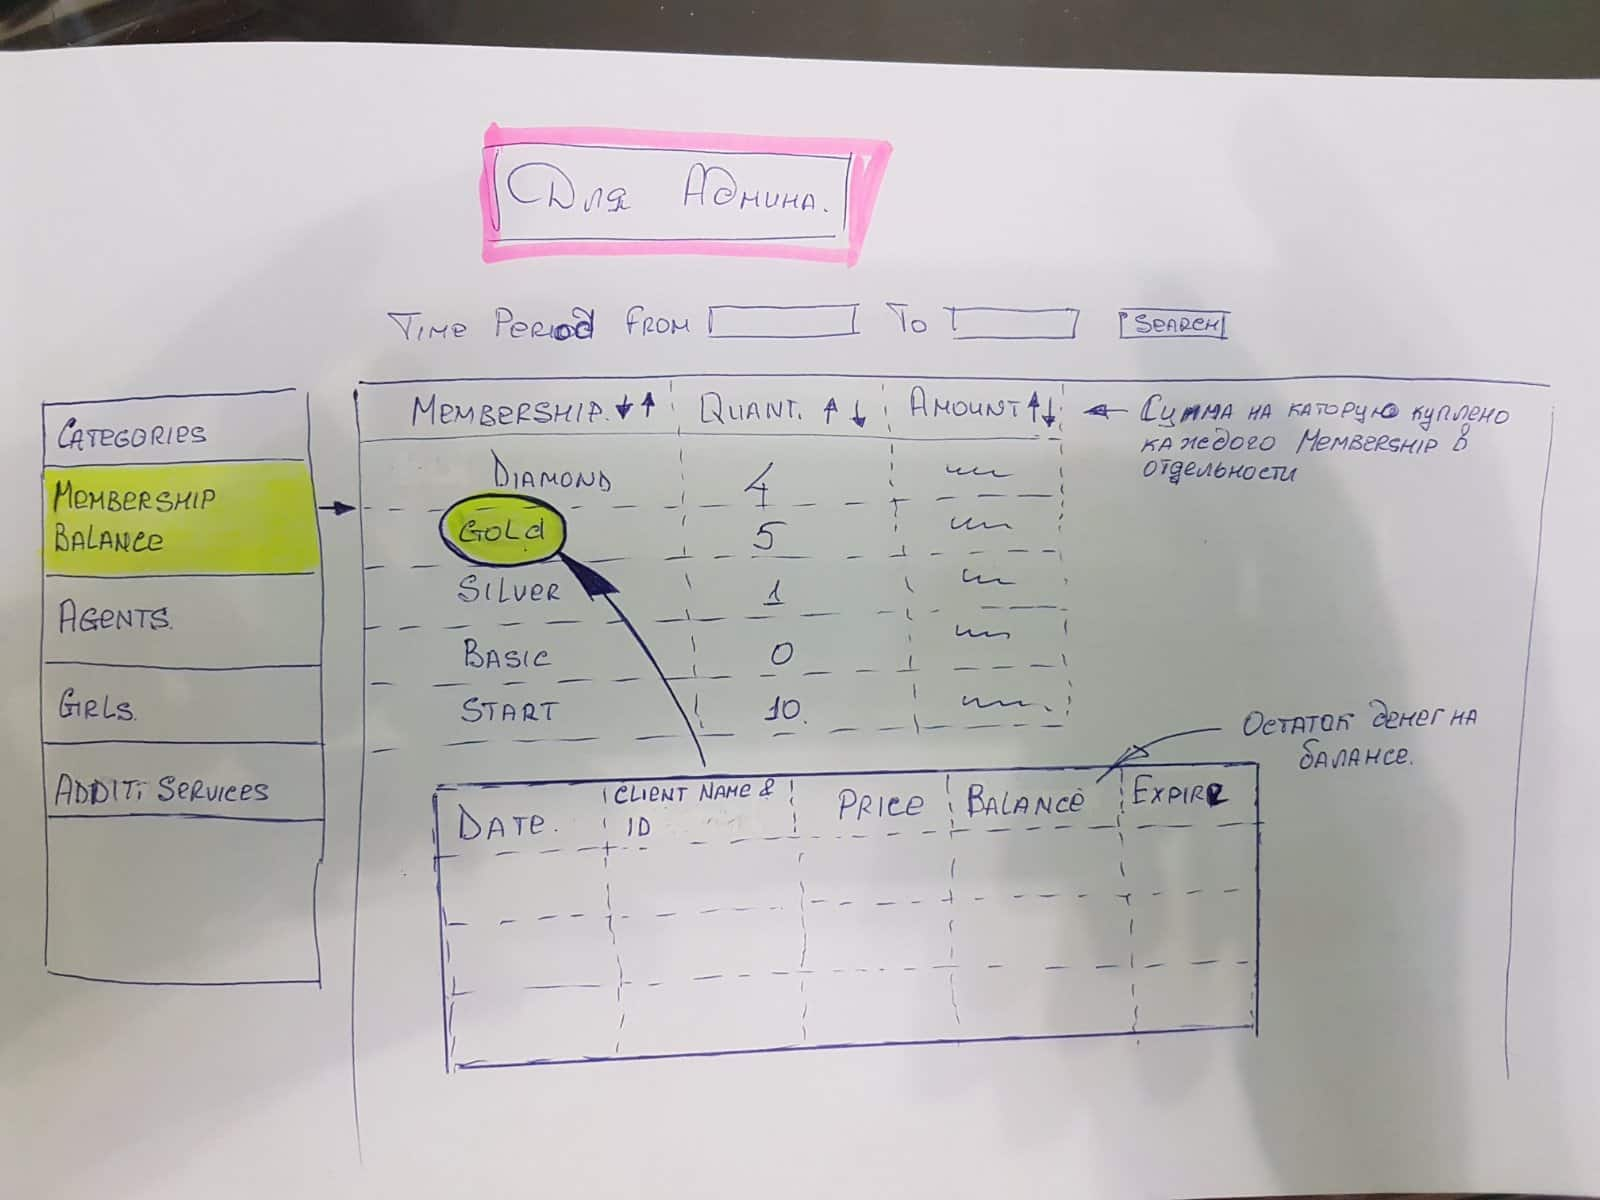 Для Админа.
Time Period From To Search
Categories
Membership
Balance
Agents.
Girls.
Additi Services
Membership. ↓↑ Quant. ↑↓ Amount ↑↓
Diamond 4
Gold 5
Silver 1
Basic 0
Start 10.
← Сумма на каторую куплено
каждого Membership в
отдельности
Остаток денег на
балансе.
Date. Client name & ID Price Balance Expire